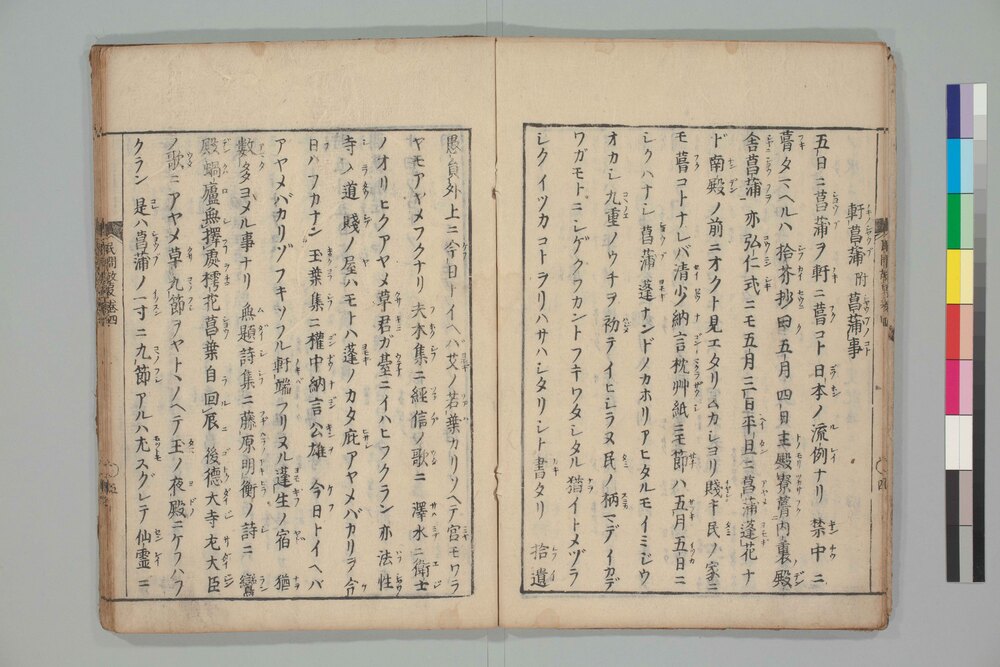 軒菖蒲 附 菖蒲事
五日ニ菖蒲ヲ軒ニ葺コト日本ノ流例ナリ 禁中ニ
葺タマヘルハ拾芥抄曰五月四日主殿寮葺内裏殿
舎菖蒲 亦弘仁式ニモ五月三日平旦ニ菖蒲蓬花ナ
ド南殿ノ前ニオクト見エタリムカシヨリ賤キ民ノ家ニ
モ葺コトナレバ清少納言枕艸紙ニモ節ハ五月五日ニ
シクハナシ菖蒲蓬ナンドノカホリアヒタルモイミジウ
オカシ九重ノウチヲ初テイヒシラヌ民ノ栖マデイカデ
ワガモトニシゲクフカントフキワタシタル猶イトメヅラ
シクイツカコトヲリハサハシタリシト書タリ 拾遺
愚員外上ニ今日トイヘバ艾ノ若葉カリソヘテ宮モワラ
ヤモアヤメフクナリ 夫木集ニ經信ノ歌ニ 澤水ニ衛士
ノオリヒクアヤメ草君ガ臺ニイハヒフクラン 亦法性
寺入道 賤ノ屋ハモトハ蓬ノカタ庇アヤメバカリヲ今
日ハフカナン 玉葉集ニ權中納言公雄 今日トイヘバ
アヤメバカリゾフキソフル軒端フリヌル蓬生ノ宿 猶
數多ヨメル事ナリ 無題詩集ニ藤原明衡ノ詩ニ 鸞
殿蝸廬無擇處樗花菖葉自回辰 後德大寺左大臣
ノ歌ニアヤメ草九節ヲヤトヽノヘテ玉ノ夜殿ニケフハフ
クラン 是ハ菖蒲ノ一寸ニ九節アルハ尤スグレテ仙靈ニ